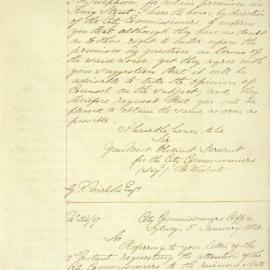 King Street, I have to
the City Commissioners to inform
you that although they have no doubt
as to their right to enter upon the
premises in question, in terms of
the said Lease, yet they agree with
your suggestion that it will be
advisable to take the opinion of
Counsel on the subject, and they
therefore request that you will be
pleased to obtain the same as soon as
possible.
I have the honor to be
Sir
Your Most Obedient Servant
for the City Commissioners
G. R. Nichols Esqr
City Commissioners Office
Sydney, January 185
Sir
Referring to your letter of the
Instant, requesting the attention of
the City Commissioners to the